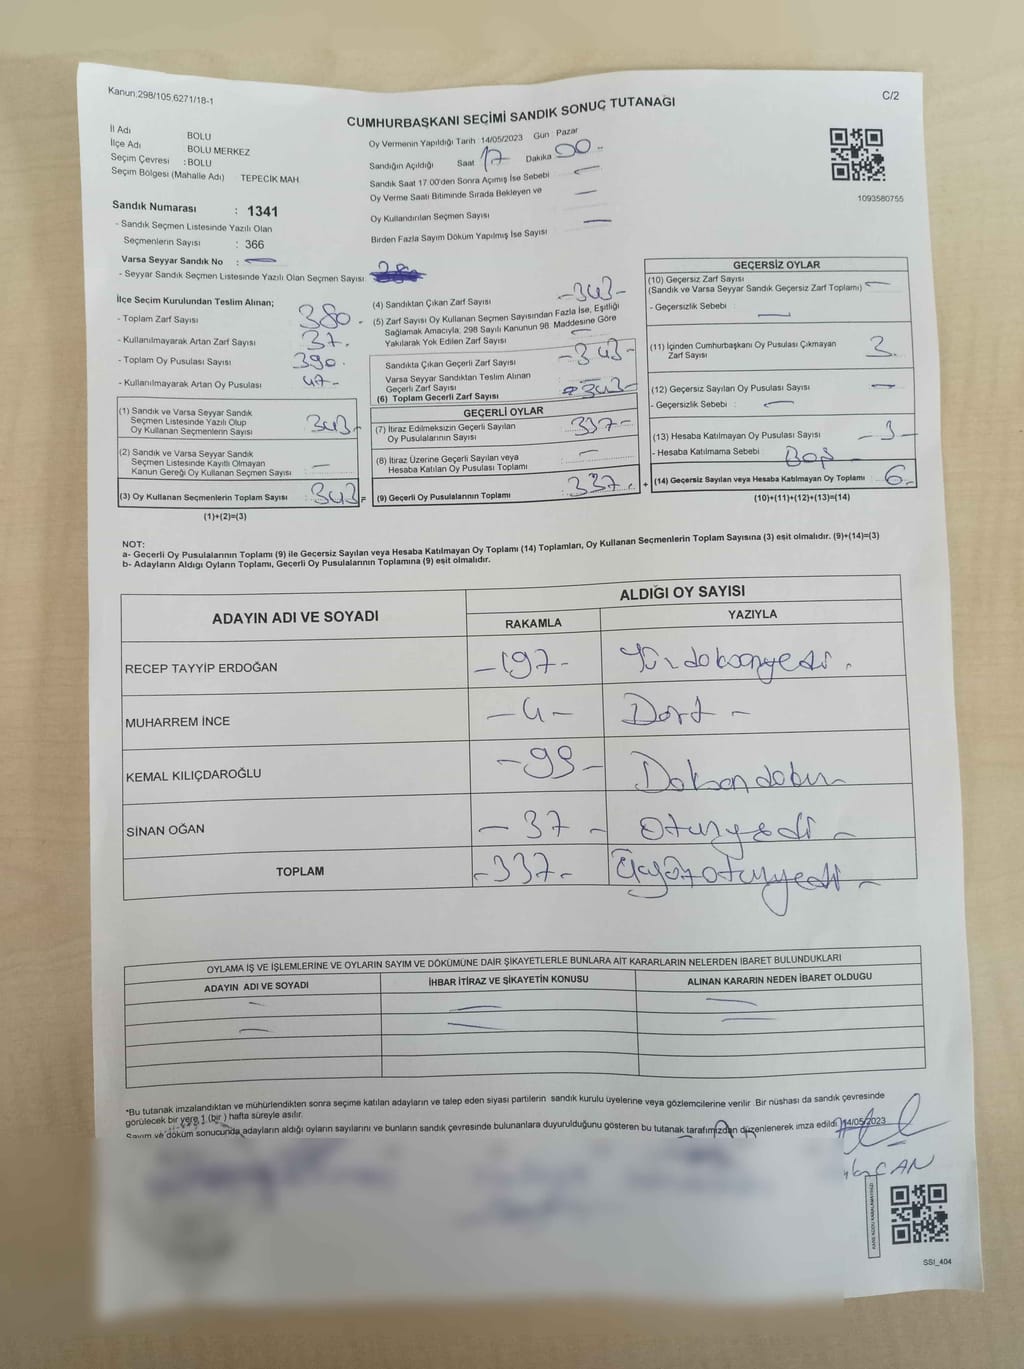 Kanun:298/105,6271/18-1
C/2
CUMHURBAŞKANI SEÇİMİ SANDIK SONUÇ TUTANAĞI
İl Adı BOLU
İlçe Adı BOLU MERKEZ
Seçim Çevresi : BOLU
Seçim Bölgesi (Mahalle Adı) TEPECİK MAH
Oy Vermenin Yapıldığı Tarih 14/05/2023 Gün Pazar
Sandığın Açıldığı Saat 17 Dakika 00
Sandık Saat 17 00'den Sonra Açımış İse Sebebi
Oy Verme Saati Bitiminde Sırada Bekleyen ve
Oy Kullandırılan Seçmen Sayısı
Birden Fazla Sayım Döküm Yapılmış İse Sayısı
1093580755
Sandık Numarası : 1341
- Sandık Seçmen Listesinde Yazılı Olan
Seçmenlerin Sayısı : 366
Varsa Seyyar Sandık No : —
- Seyyar Sandık Seçmen Listesinde Yazılı Olan Seçmen Sayısı
İlçe Seçim Kurulundan Teslim Alınan;
- Toplam Zarf Sayısı 380 -
- Kullanılmayarak Artan Zarf Sayısı 37.
- Toplam Oy Pusulası Sayısı 390.
- Kullanılmayarak Artan Oy Pusulası 47-
(1) Sandık ve Varsa Seyyar Sandık
Seçmen Listesinde Yazılı Olup
Oy Kullanan Seçmenlerin Sayısı 343-
(2) Sandık ve Varsa Seyyar Sandık
Seçmen Listesinde Kayıtlı Olmayan
Kanun Gereği Oy Kullanan Seçmen Sayısı —
(3) Oy Kullanan Seçmenlerin Toplam Sayısı 343 =
(1)+(2)=(3)
(4) Sandıktan Çıkan Zarf Sayısı -343-
(5) Zarf Sayısı Oy Kullanan Seçmen Sayısından Fazla İse, Eşitliği
Sağlamak Amacıyla; 298 Sayılı Kanunun 98. Maddesine Göre
Yakılarak Yok Edilen Zarf Sayısı —
Sandıkta Çıkan Geçerli Zarf Sayısı -343-
Varsa Seyyar Sandıktan Teslim Alınan
Geçerli Zarf Sayısı —
(6) Toplam Gecerli Zarf Sayısı 343-
GEÇERLİ OYLAR
(7) İtiraz Edilmeksizin Geçerli Sayılan
Oy Pusulalarının Sayısı 337-
(8) İtiraz Üzerine Geçerli Sayılan veya
Hesaba Katılan Oy Pusulası Toplamı —
(9) Geçerli Oy Pusulalarının Toplamı 337. +
GEÇERSİZ OYLAR
(10) Geçersiz Zarf Sayısı
(Sandık ve Varsa Seyyar Sandık Geçersiz Zarf Toplamı) —
- Geçersizlik Sebebi : —
(11) İçinden Cumhurbaşkanı Oy Pusulası Çıkmayan
Zarf Sayısı 3.
(12) Geçersiz Sayılan Oy Pusulası Sayısı —
- Geçersizlik Sebebi : —
(13) Hesaba Katılmayan Oy Pusulası Sayısı -3-
- Hesaba Katılmama Sebebi Boş -
(14) Geçersiz Sayılan veya Hesaba Katılmayan Oy Toplamı : 6.
(10)+(11)+(12)+(13)=(14)
NOT:
a- Geçerli Oy Pusulalarının Toplamı (9) ile Geçersiz Sayılan veya Hesaba Katılmayan Oy Toplamı (14) Toplamları, Oy Kullanan Seçmenlerin Toplam Sayısına (3) eşit olmalıdır. (9)+(14)=(3)
b- Adayların Aldığı Oyların Toplamı, Geçerli Oy Pusulalarının Toplamına (9) eşit olmalıdır.
ADAYIN ADI VE SOYADI ALDIĞI OY SAYISI
RAKAMLA YAZIYLA
RECEP TAYYİP ERDOĞAN -197- Yüzdoksanyedi.
MUHARREM İNCE -4- Dört -
KEMAL KILIÇDAROĞLU -99- Doksandokuz
SİNAN OĞAN -37- Otuzyedi -
TOPLAM -337- Üçyüzotuzyedi -
OYLAMA İŞ VE İŞLEMLERİNE VE OYLARIN SAYIM VE DÖKÜMÜNE DAİR ŞİKAYETLERLE BUNLARA AİT KARARLARIN NELERDEN İBARET BULUNDUKLARI
ADAYIN ADI VE SOYADI İHBAR İTİRAZ VE ŞİKAYETİN KONUSU ALINAN KARARIN NEDEN İBARET OLDUGU
*Bu tutanak imzalandıktan ve mühürlendikten sonra seçime katılan adayların ve talep eden siyasi partilerin sandık kurulu üyelerine veya gözlemcilerine verilir. Bir nüshası da sandık çevresinde
görülecek bir yere 1 (bir ) hafta süreyle asılır.
Sayım ve döküm sonucunda adayların aldığı oyların sayılarını ve bunların sandık çevresinde bulunanlara duyurulduğunu gösteren bu tutanak tarafımızdan düzenlenerek imza edildi 14/05/2023
CAN
SSI_404